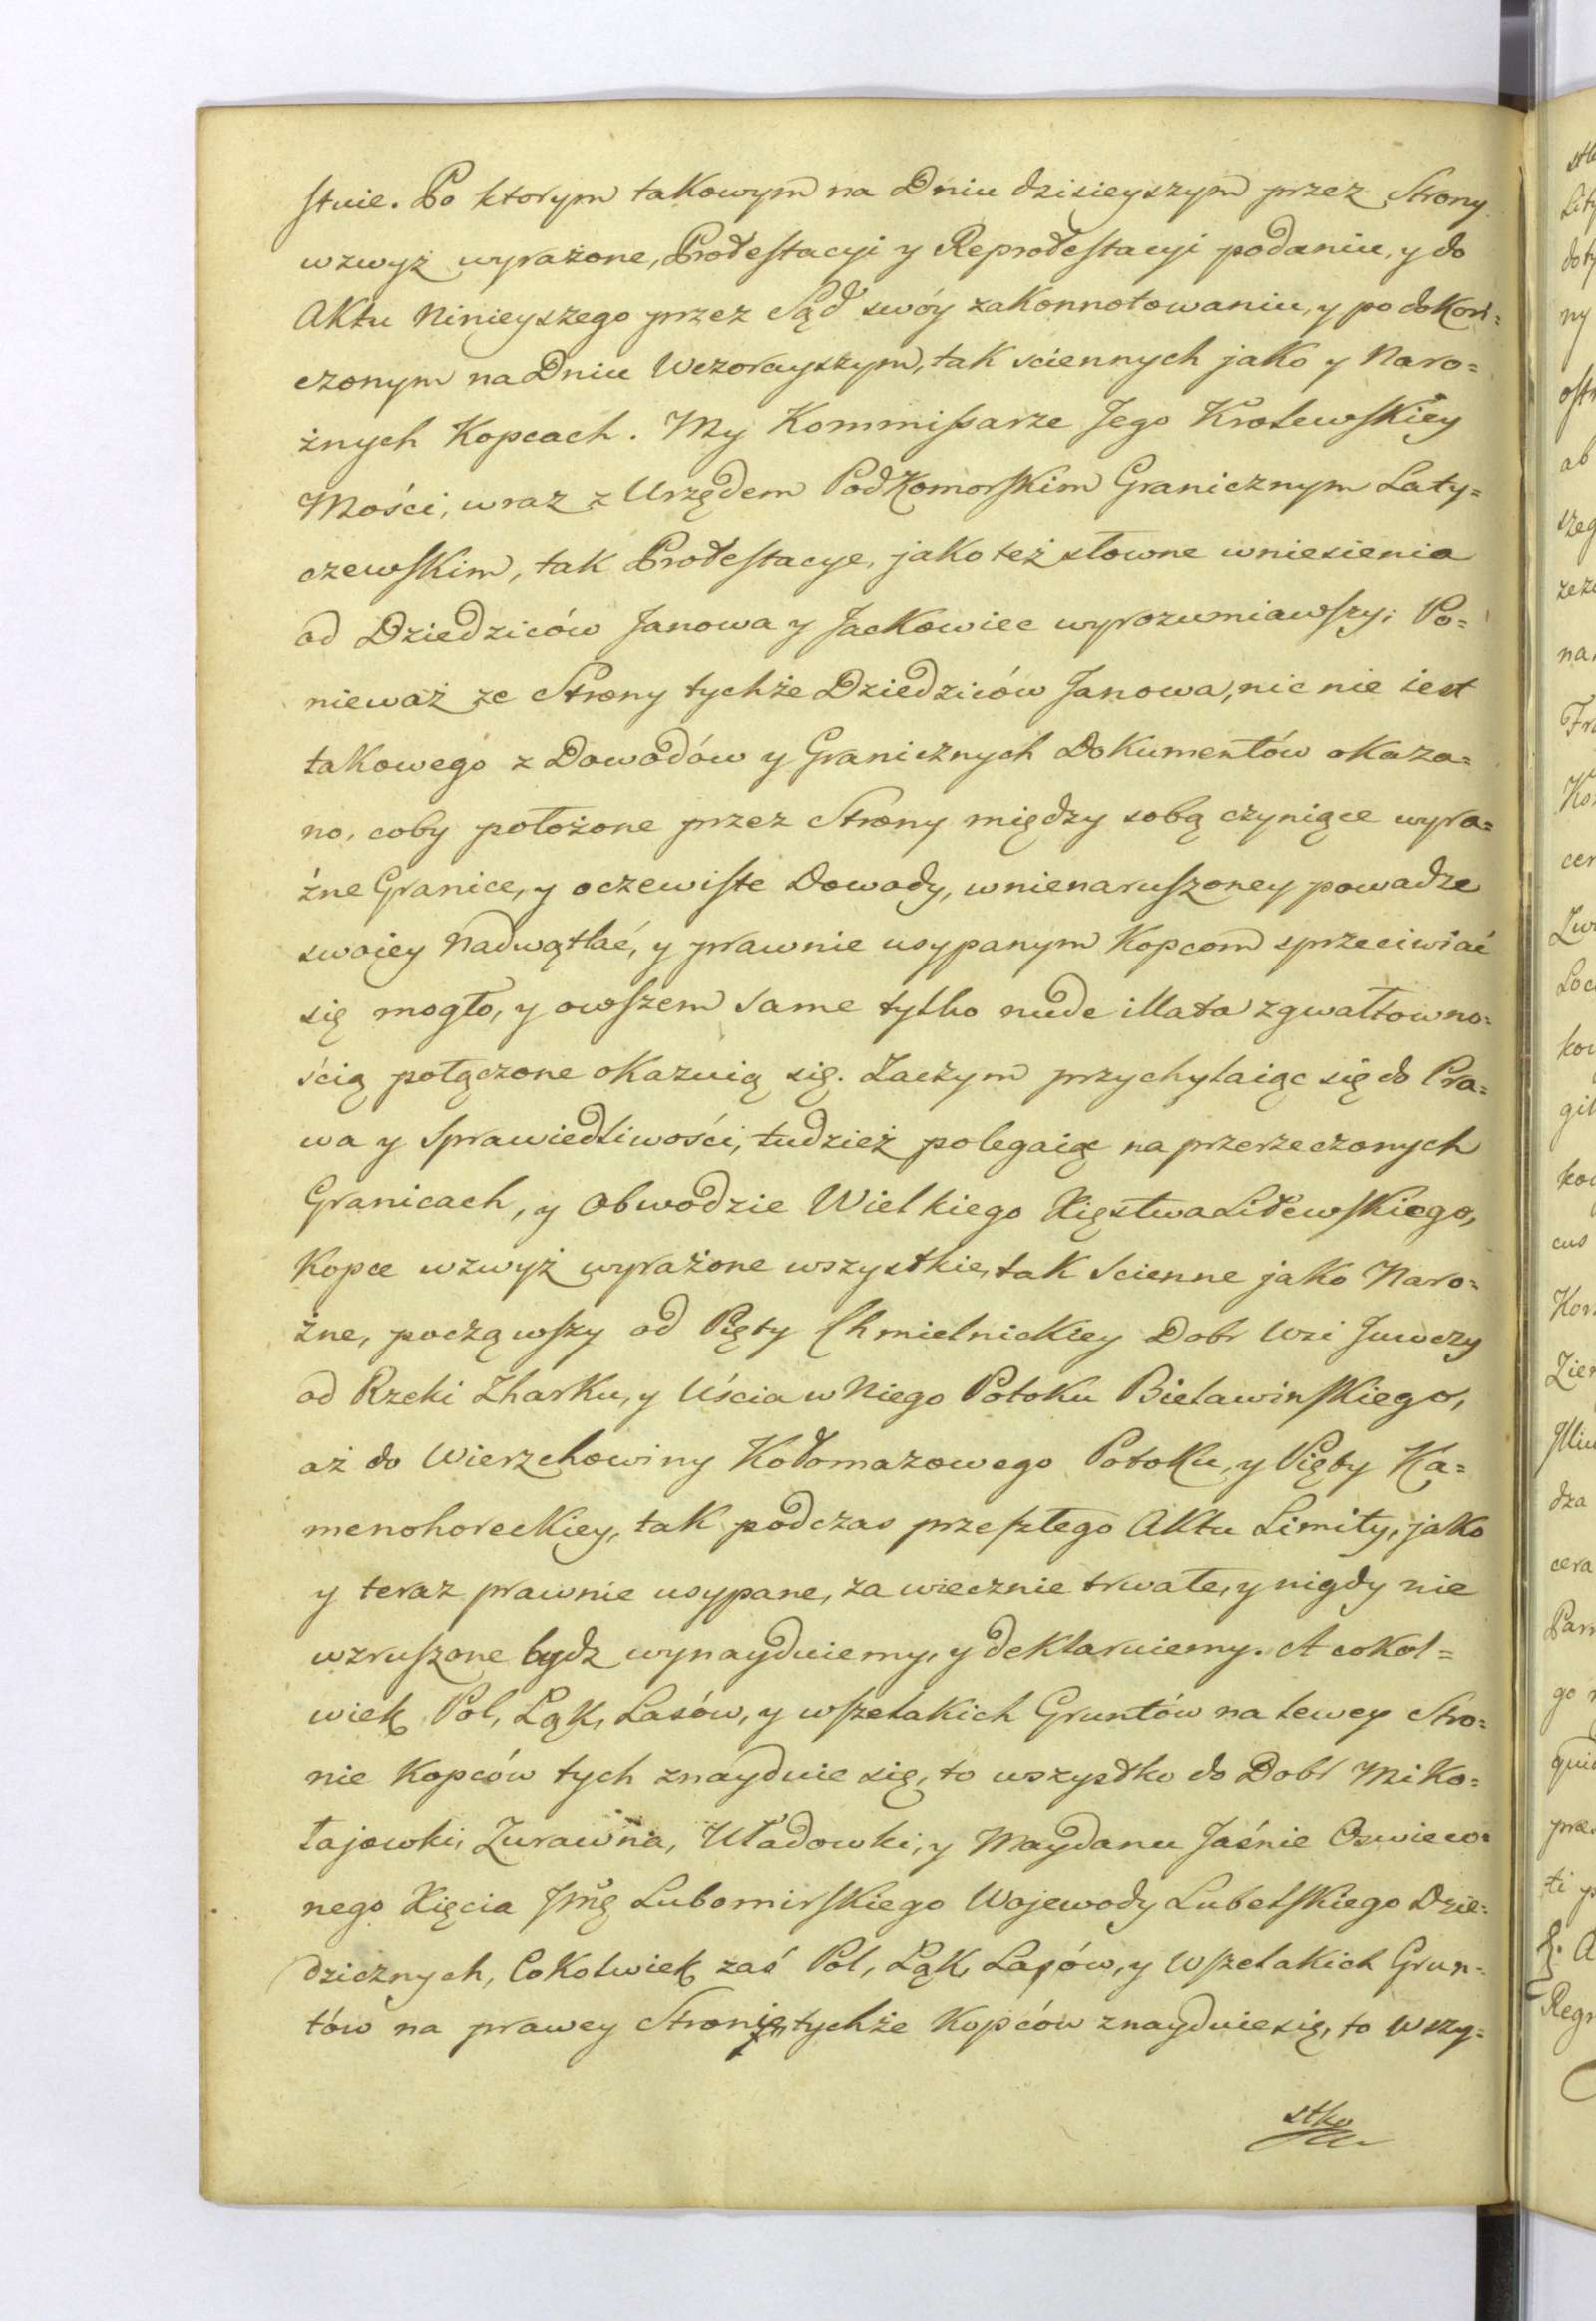 stuie. Po ktorym takowym na Dniu dzisieyszym przez Strony
wzwyż wyrażone, Protestacyi y Reprotestacyi podaniu, y do
Aktu Ninieyszego przez Sąd swóy zakonnotowaniu, y po dokoń=
czonym na Dniu Wczorayszym, tak sciennych jako y Naro=
żnych Kopcach. My Kommissarze Jego Krolewskiey
Mości, wraz z Urzędem Podkomorskim Granicznym Laty=
czewskim, tak Protestacye, jako też słowne wniesienia
od Dziedziców Janowa y Jackowiec wyrozumiawszy; Po=
nieważ ze Strony tychże Dziedziców Janowa, nic nie iest
takowego z Dowodów y Granicznych Dokumentów okaza=
no, coby położone przez Strony między sobą czyniące wyra=
źne Granice, y oczewiste Dowody, w nienaruszoney powadze
swoiey Nadwątlać, y prawnie usypanym Kopcom sprzeciwiać
się mogło, y owszem same tylko nude illata z gwałtowno=
ścią połączone okazuią się. Zaczym przychylaiąc się do Pra=
wa y Sprawiedliwości, tudzież polegaiąc na przerzeczonych
Granicach, y Obwodzie Wielkiego Xięstwa Litewskiego,
Kopce wzwyż wyrażone wszystkie, tak Scienne jako Naro=
żne, począwszy od Pięty Chmielnickiey Dobr Wsi Juwczy
od Rzeki Zharku, y Uścia w Niego Potoku Bielawinskiego,
aż do Wierzchowiny Kołomazowego Potoku, y Pięty Ka=
menohoreckiey, tak podczas przeszłego Aktu Limity, jako
y teraz prawnie usypane, za wiecznie trwałe, y nigdy nie
wzruszone bydz wynayduiemy, y deklaruiemy. A cokol=
wiek Pol, Łąk, Lasów, y wszelakich Gruntów na lewey Stro=
nie Kopców tych znayduie się, to wszystko do Dobr Miko=
łajowki, Zurawna, Uładowki, y Maydanu Jaśnie Oswieco=
nego Xięcia Jmę Lubomirskiego Wojewody Lubelskiego Dzie=
dzicznych, Cokolwiek zaś Pol, Łąk, Lasów, y Wszelakich Grun=
tów na prawey Stronie, tychże Kopców znayduie się, to Wszy=
stko